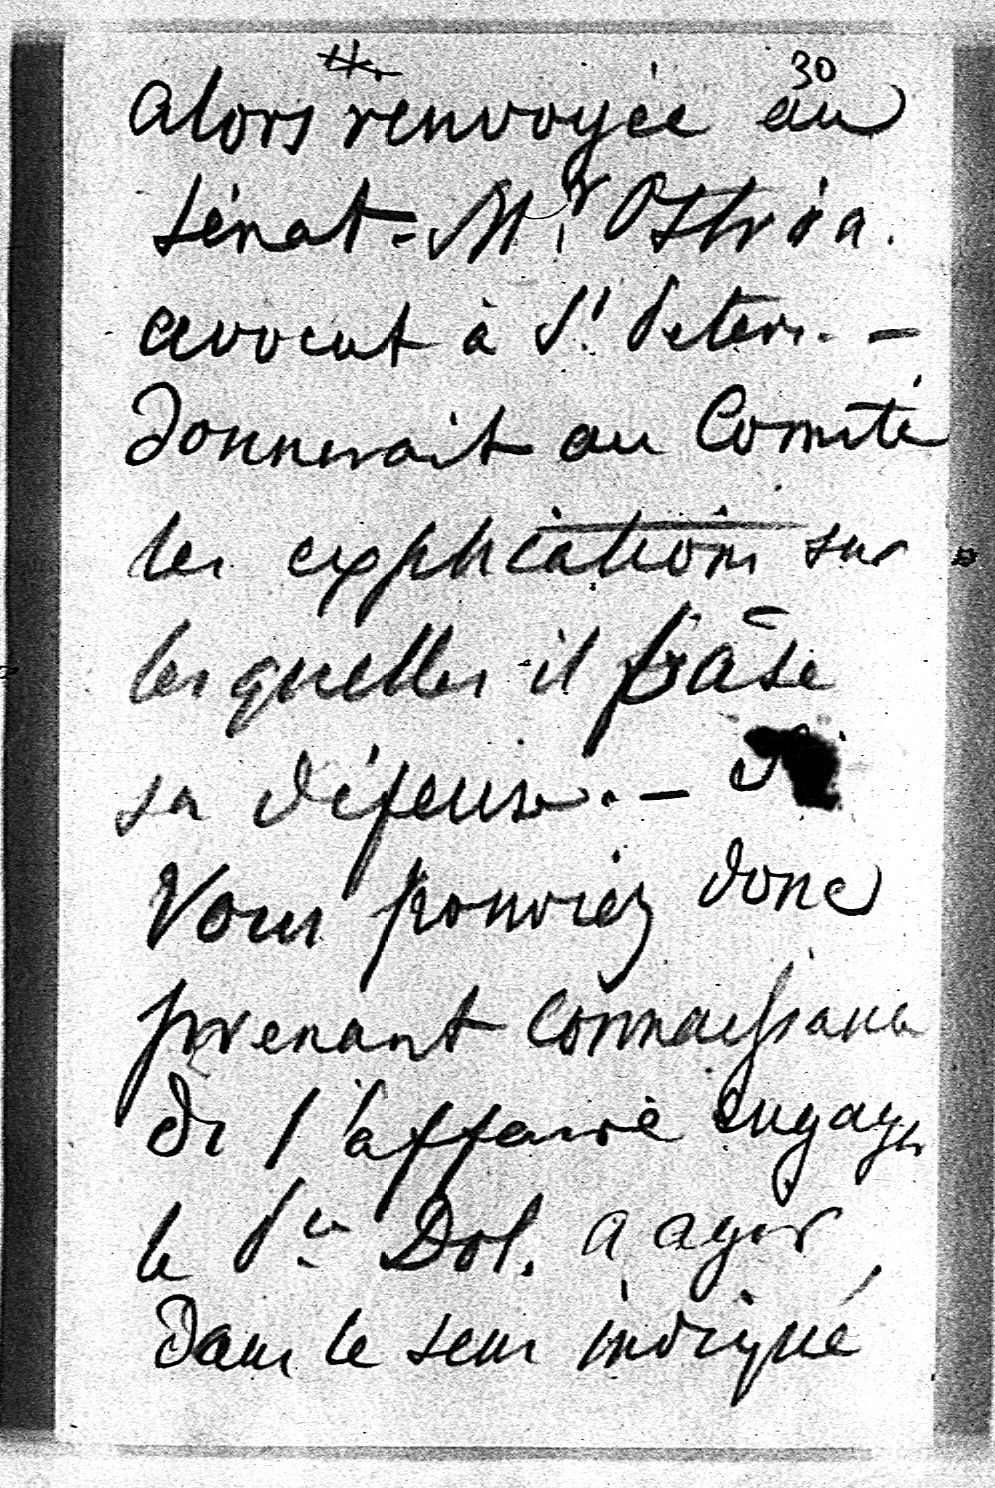 30
alors renvoyée au
sénat = Mr
avocat à St Peters. —
donnerait au Comité
les explications sur
lesquelles il base
sa défense. —
Vous pouviez donc
prenant connaissance
de l'affaire engager
le Pce Dol. a agir
dans le sens indiqué